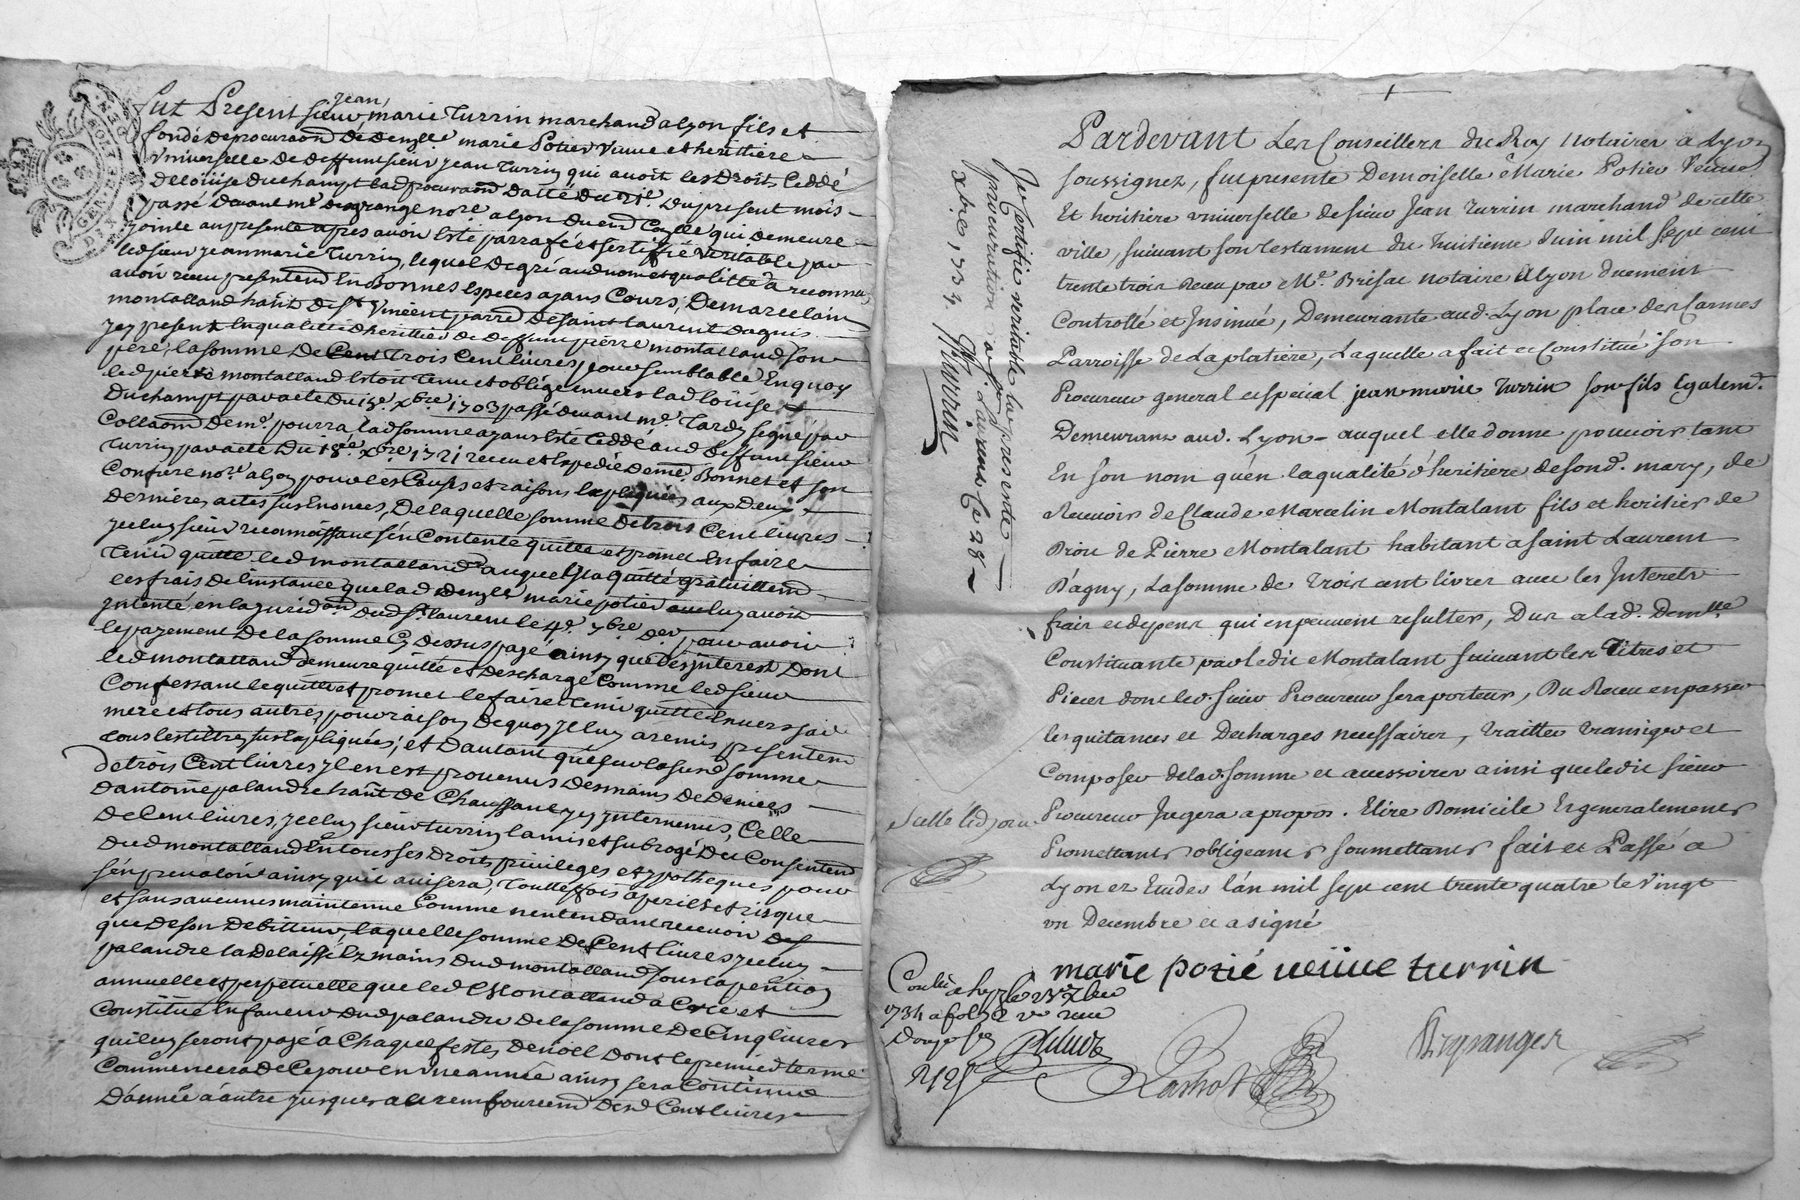 jean
Fut Present sieur marie Turrin marchand a lyon fils et
fondé de procuraōn de Demzlle marie Potier Veuve et heritiere
Vniverselle de deffunt sieur jean Turrin qui avoit les Droits Ceddé
De loüise Duchampt lad procuraōn dattée du 21e. Du present mois
passé devant me Degrange nore a lyon
jointe au presente apres avoir esté parrafé et sertiffié veritable par
led sieur jean marie Turrin, lequel De gré aud nom et qualitté a reconnu
avoir receu presentem̄ en bonnes especes ayans Cours, De marcelain
montalland habit̄ de st Vincent parr̄ de saint laurent dagnis
jcy present En qualitté dheritier de deffunt pierre montalland son
pere, la somme De Trois Cent livres, pour semblable En quoy
led pierre montalland Estoit Tenu et obligé envers lad loüise
Duchampt par acte Du 13e. xbre 1703 passé devant me. Tardy signé par
Collaōn de me. pourra lad somme ayans Esté Ceddé aud deffunt sieur
Turrin par acte Du 18e xbre 1721 receu et Expedié de me. Bonnet et son
Confrere nore a lyon pour les Causes et raisons Expliquées aux Deux
dernieres actes sus Enoncés, De laquelle somme de trois Cent livres
jceluy sieur reconnoissant s'en Contente quitte et promet En faire
Tenir quitte led montalland auquel jl a quitté gratuitem̄
les frais de linstance que lad demzlle marie potier avoit
jntenté en la juridōn dud st laurent le 4e. 7bre der pour avoir
le payement De la somme Cy dessus payé ainsy que des jnterest Dont
led montalland demeure quitte et descharge Comme led sieur
Confessant le quitte et promet le faire Tenir quitte Envers sad
mere et tous autres, pour raison De quoy jceluy a remis presentem̄
tous les tiltres sus Expliquées; et Dautant que sur la susd somme
de trois Cent livres jl en est provenus Des mains De Denices
Dantoine palandre habit̄ De Chaussaux jcy jntervenus, Celle
De Cent livres, jceluy sieur turrin la mis et subrogé Du Consentem̄
Dud montalland En tous ses Droits, privileges et ypotheques pour
s'en prevaloir ainsy quil avisera, Touttesfois a perils et risque
et sans aucunes maintenue Comme nentendant recevoir des
que de son Debitteur, laquelle somme De Cent livres jceluy
palandre la delaissé Ez mains Dud montalland sous la pention
annuelle et perpetuelle que led Montalland a Crée et
Constitué En faveur dud palandre de la somme De Cinq livres
qui luy seront payé a Chaque festes de noël dont le premier terme
Commencera de Ce jour en Une année ainsy sera Continué
D'année a autre jusques au remboursem̄ desd Cent livres
Je Certifie veritable la presente
procuration a St. Laurens le 28
xbre 1734 JMturrin
Pardevant Les Conseillers du Roy Notaires a Lyon
soussignez, fut presente Demoiselle Marie Potier Veuve
Et heritiere vniverselle de sieur Jean Turrin marchand de cette
ville, suivant son Testament du huitieme Juin mil sept cent
trente trois Receu par Me. Brisac notaire a Lyon duement
Controllé et Insinué, Demeurante aud. Lyon place des Carmes
Parroisse de La platiere, Laquelle a fait et Constitué son
Procureur general et special jean marie Turrin son fils Egalemt.
Demeurant aud. Lyon – auquel elle donne pouvoir tant
En son nom qu'en la qualité d'heritiere de sond. mary, de
Recevoir de Claude Marcelin Montalant fils et heritier de
Droit de Pierre Montalant habitant a saint Laurent
D'agny, La somme de Trois cent livres avec les Interets
frais et depens qui en peuvent resulter, Dus a lad. Demlle
Constituante par ledit Montalant suivant les Titres et
Pieces dont led. sieur Procureur sera porteur, Du Receu en passer
les quitances et Decharges necessaires, Traitter Transiger et
Composer de lad. somme et accessoires ainsi que ledit sieur
Procureur Jugera a propos. Elire Domicile Et generalement
Promettant obligeant soumettant fait et Passé a
Lyon ez Etudes l'an mil sept cent trente quatre le Vingt
un Decembre et a signé
Scellé led jour
marie potié veuve turrin
Conlé a Lyon le 23e xbre
1734 a fol 72 vo receu
Douze sols
Degranger